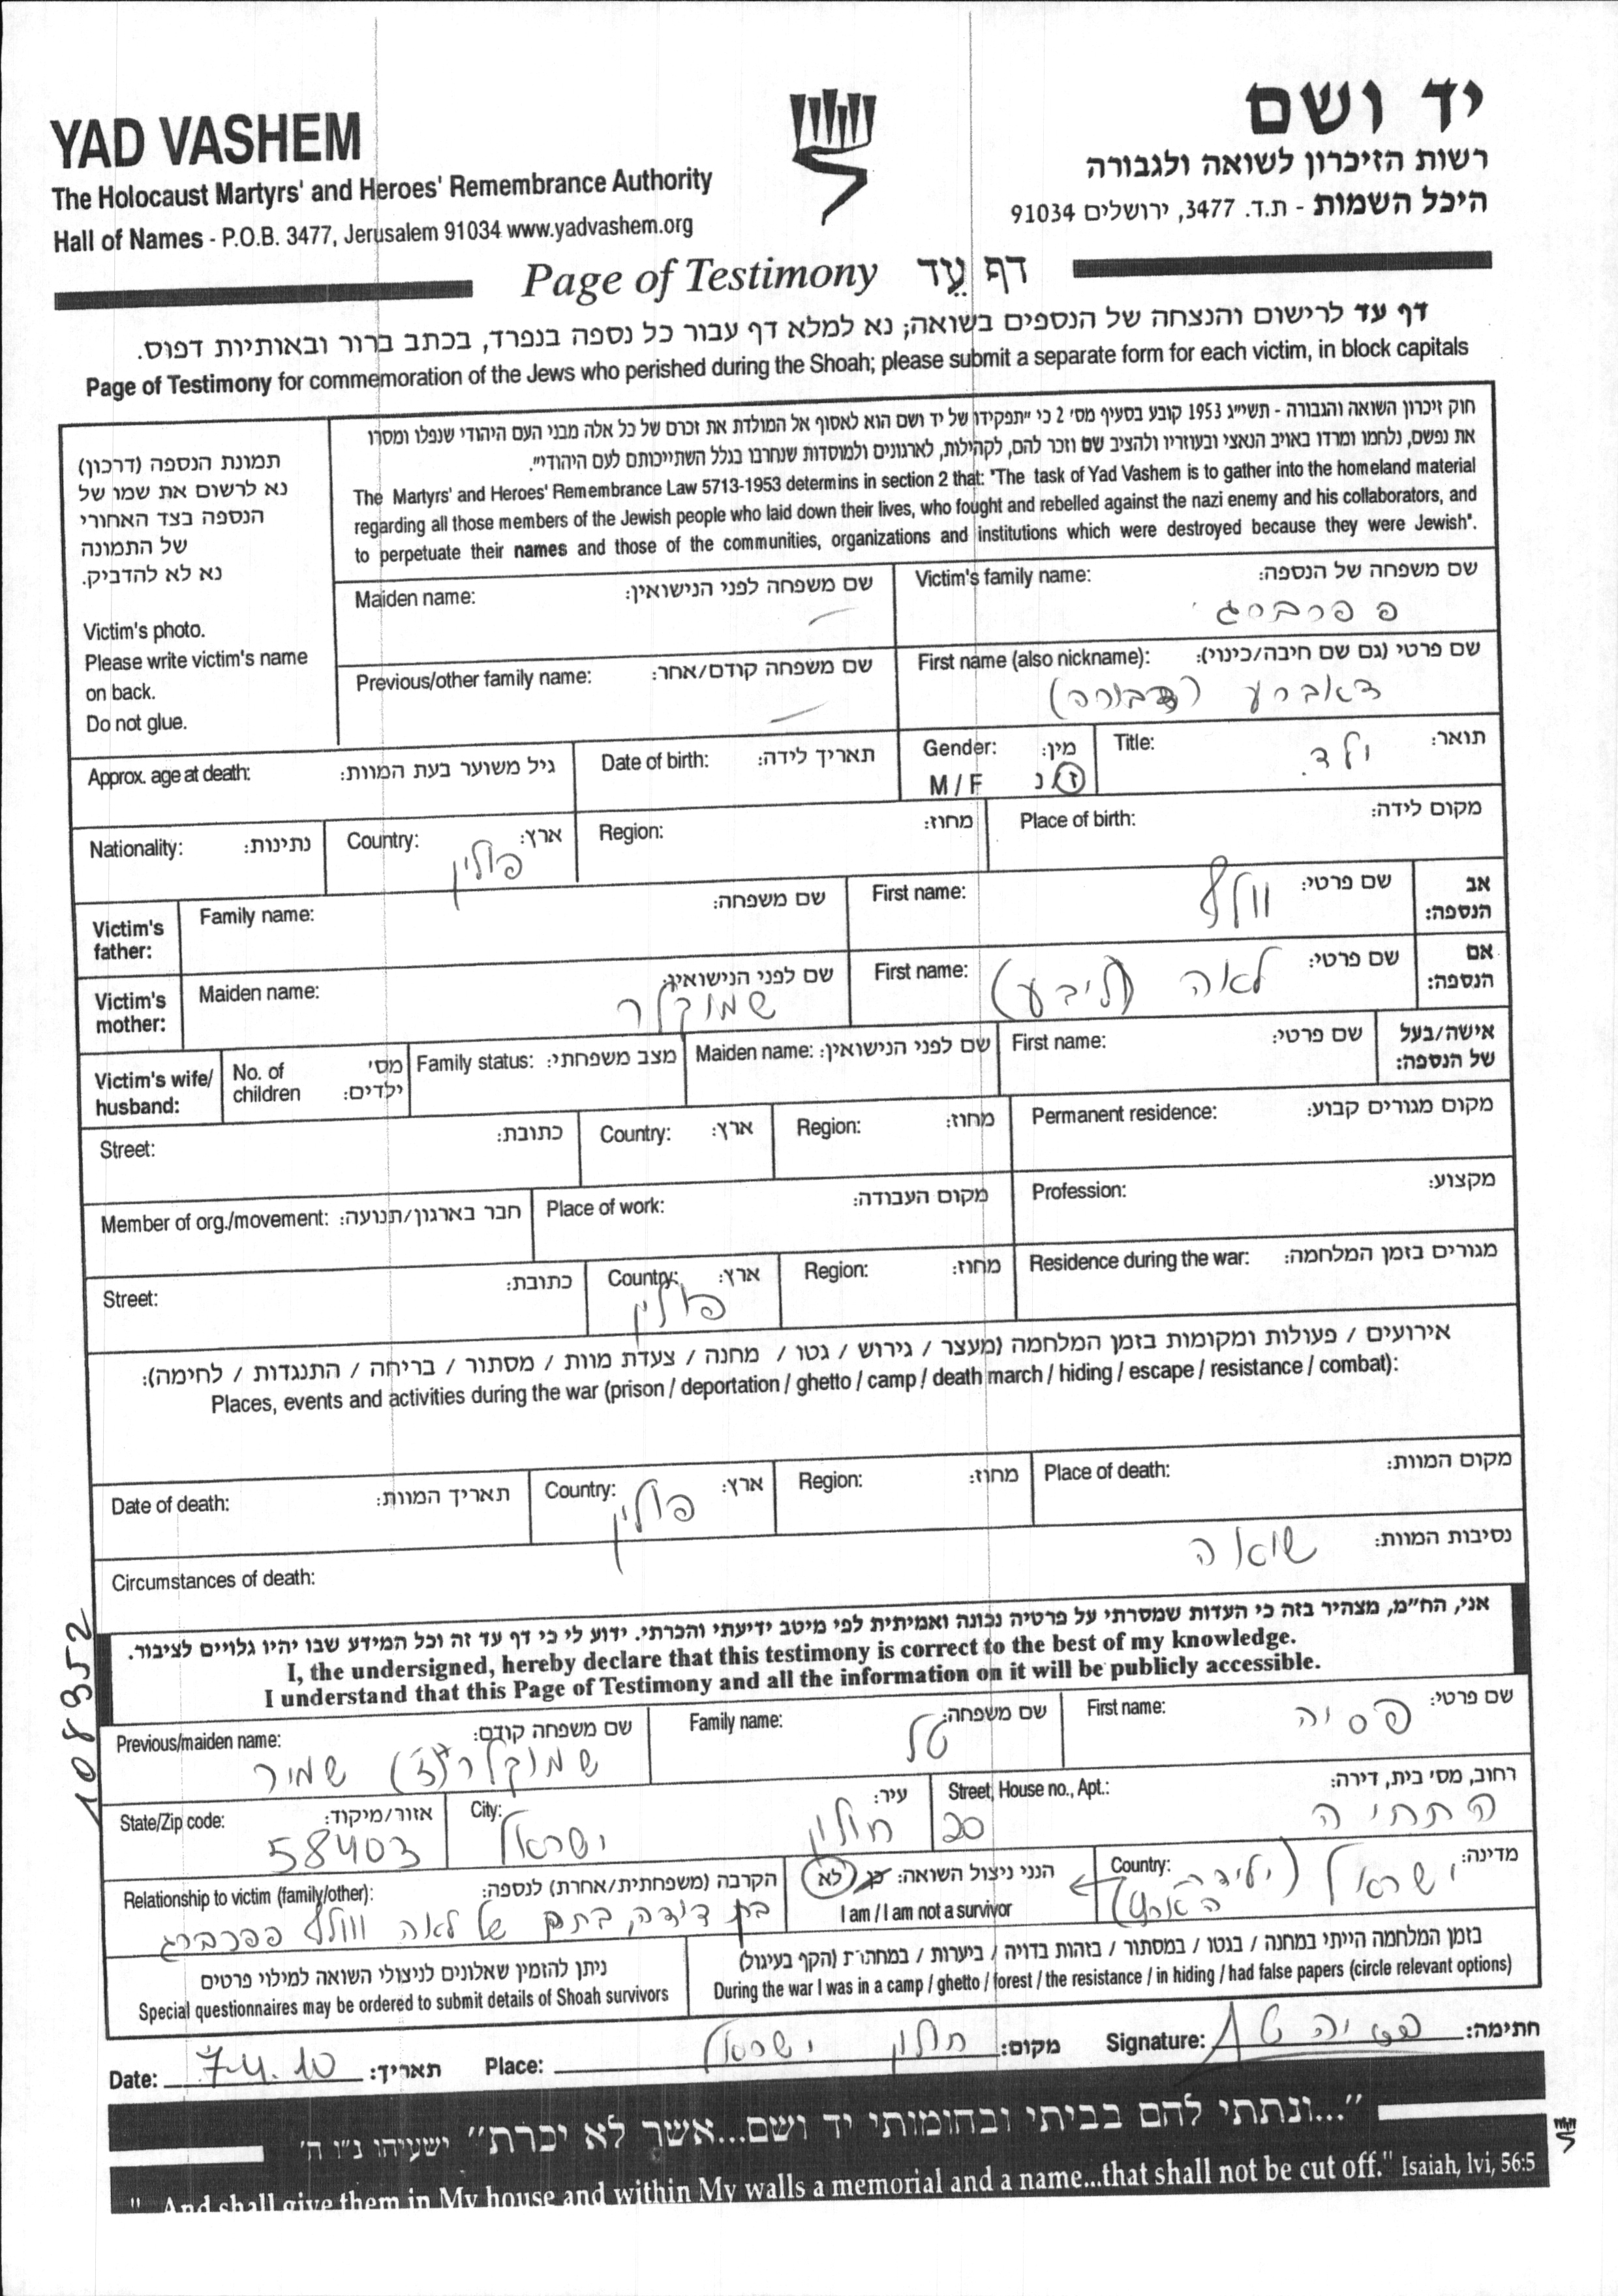 YAD VASHEM
The Holocaust Martyrs' and Heroes' Remembrance Authority
Hall of Names - P.O.B. 3477, Jerusalem 91034 www.yadvashem.org
יד ושם
רשות הזיכרון לשואה ולגבורה
היכל השמות - ת.ד. 3477, ירושלים 91034
Page of Testimony דף עֵד
דף עד לרישום והנצחה של הנספים בשואה; נא למלא דף עבור כל נספה בנפרד, בכתב ברור ובאותיות דפוס.
Page of Testimony for commemoration of the Jews who perished during the Shoah; please submit a separate form for each victim, in block capitals
תמונת הנספה (דרכון)
נא לרשום את שמו של
הנספה בצד האחורי
של התמונה
נא לא להדביק.
Victim's photo.
Please write victim's name
on back.
Do not glue.
חוק זיכרון השואה והגבורה - תשי״ג 1953 קובע בסעיף מס׳ 2 כי ״תפקידו של יד ושם הוא לאסוף אל המולדת את זכרם של כל אלה מבני העם היהודי שנפלו ומסרו
את נפשם, נלחמו ומרדו באויב הנאצי ובעוזריו ולהציב שם וזכר להם, לקהילות, לארגונים ולמוסדות שנחרבו בגלל השתייכותם לעם היהודי״.
The Martyrs' and Heroes' Remembrance Law 5713-1953 determins in section 2 that: "The task of Yad Vashem is to gather into the homeland material
regarding all those members of the Jewish people who laid down their lives, who fought and rebelled against the nazi enemy and his collaborators, and
to perpetuate their names and those of the communities, organizations and institutions which were destroyed because they were Jewish".
Victim's family name: שם משפחה של הנספה:
פפרברג
Maiden name: שם משפחה לפני הנישואין:
First name (also nickname): שם פרטי (גם שם חיבה/כינוי):
דאברע (דבורה)
Previous/other family name: שם משפחה קודם/אחר:
Title: תואר:
ילד.
Gender: מין:
M / F ז/נ
Date of birth: תאריך לידה:
Approx. age at death: גיל משוער בעת המוות:
Place of birth: מקום לידה:
Region: מחוז:
Country: ארץ:
פולין
Nationality: נתינות:
אב הנספה:
First name: שם פרטי:
וולף
Family name: שם משפחה:
Victim's father:
אם הנספה:
First name: שם פרטי:
לאה (ליבע)
Maiden name: שם לפני הנישואין:
שמוקלר
Victim's mother:
אישה/בעל של הנספה:
First name: שם פרטי:
Maiden name: שם לפני הנישואין:
Family status: מצב משפחתי:
No. of children מס׳ ילדים:
Victim's wife/ husband:
Permanent residence: מקום מגורים קבוע:
Region: מחוז:
Country: ארץ:
Street: כתובת:
Profession: מקצוע:
Place of work: מקום העבודה:
Member of org./movement: חבר בארגון/תנועה:
Residence during the war: מגורים בזמן המלחמה:
Region: מחוז:
Country: ארץ:
פולין
Street: כתובת:
אירועים / פעולות ומקומות בזמן המלחמה (מעצר / גירוש / גטו / מחנה / צעדת מוות / מסתור / בריחה / התנגדות / לחימה):
Places, events and activities during the war (prison / deportation / ghetto / camp / death march / hiding / escape / resistance / combat):
Place of death: מקום המוות:
Region: מחוז:
Country: ארץ:
פולין
Date of death: תאריך המוות:
Circumstances of death: נסיבות המוות:
שואה
אני, הח״מ, מצהיר בזה כי העדות שמסרתי על פרטיה נכונה ואמיתית לפי מיטב ידיעתי והכרתי. ידוע לי כי דף עד זה וכל המידע שבו יהיו גלויים לציבור.
I, the undersigned, hereby declare that this testimony is correct to the best of my knowledge.
I understand that this Page of Testimony and all the information on it will be publicly accessible.
108352
First name: שם פרטי:
פסיה
Family name: שם משפחה:
טל
Previous/maiden name: שם משפחה קודם:
שמוקלר שמיר
Street, House no., Apt.: רחוב, מס׳ בית, דירה:
התחיה 20
City: עיר:
חולון ישראל
State/Zip code: אזור/מיקוד:
58403
Country: מדינה:
ישראל (ילידת הארץ)
הנני ניצול השואה: כן / לא
I am / I am not a survivor
Relationship to victim (family/other): הקרבה (משפחתית/אחרת) לנספה:
בת דודה, בתם של לאה ווולף פפרברג
בזמן המלחמה הייתי במחנה / בגטו / במסתור / בזהות בדויה / ביערות / במחתרת (הקף בעיגול)
During the war I was in a camp / ghetto / forest / the resistance / in hiding / had false papers (circle relevant options)
ניתן להזמין שאלונים לניצולי השואה למילוי פרטים
Special questionnaires may be ordered to submit details of Shoah survivors
Date: 7.4.10 תאריך: Place: חולון ישראל מקום: Signature: פסיה טל חתימה:
״...ונתתי להם בביתי ובחומותי יד ושם...אשר לא יכרת״ ישעיהו נ״ו ה׳
"...And shall give them in My house and within My walls a memorial and a name...that shall not be cut off." Isaiah, lvi, 56:5